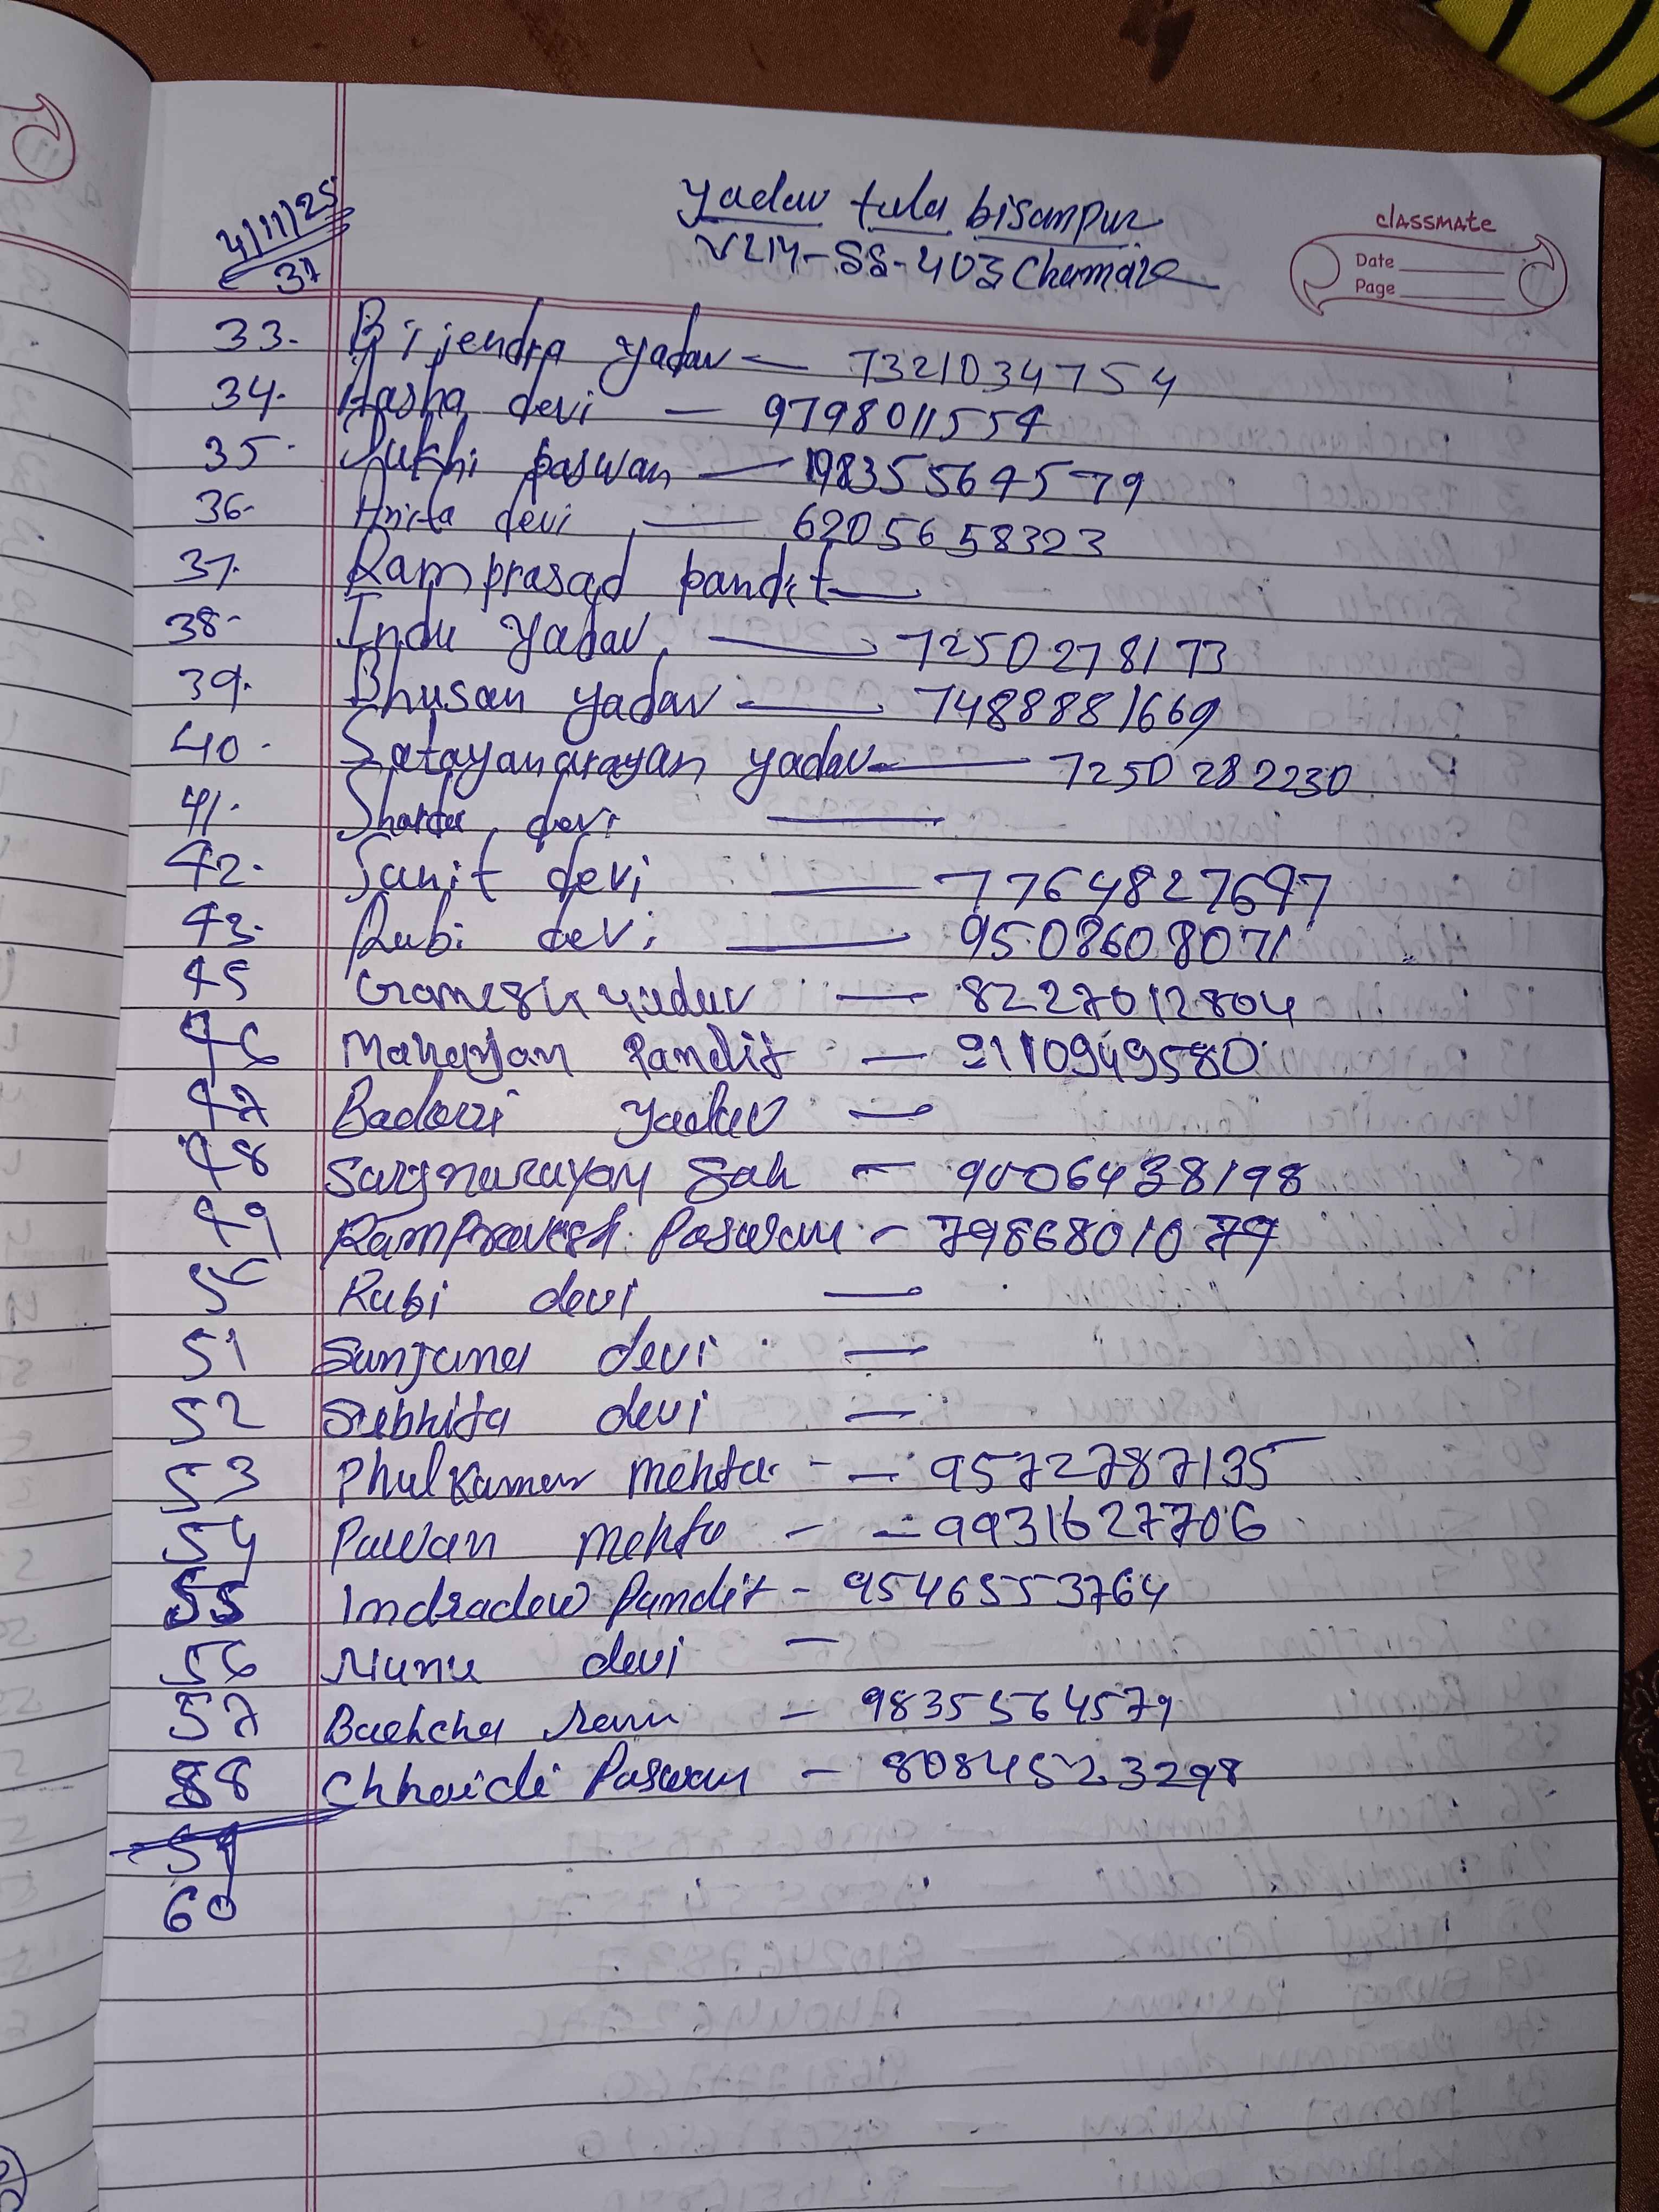 4/11/25
37
Yadav tula bisanpur
VLM-SS-403 Chamar
classmate
Date
Page
33. Bijendra yadav — 7321034754
34. Aasha devi — 9798011554
35. Sukhi paswan — 9835564579
36. Anita devi — 6205658323
37. Ramprasad pandit —
38. Indu yadav — 7250278173
39. Bhusan yadav — 7488881669
40. Satayanarayan yadav — 7250282230
41. devi —
42. Sunit devi — 7764827697
43. Rubi devi — 9508608071
45 Ganesh yadav — 8227012804
46 Mahenjan Pandit — 9110949580
47 Badari yadav —
48 Surynarayan Sah — 9006438198
49 Rampravesh Paswan — 7986801079
50 Rubi devi —
51 Sanjana devi —
52 devi —
53 Phulkumar Mehta - — 9572787135
54 Pawan Mehta - — 9931627706
55 Indradew Pandit - 9546553764
56 Nunu devi —
57 Bachcha ram — 9835564579
58 Chhaidi Paswan — 8084523298
59
60